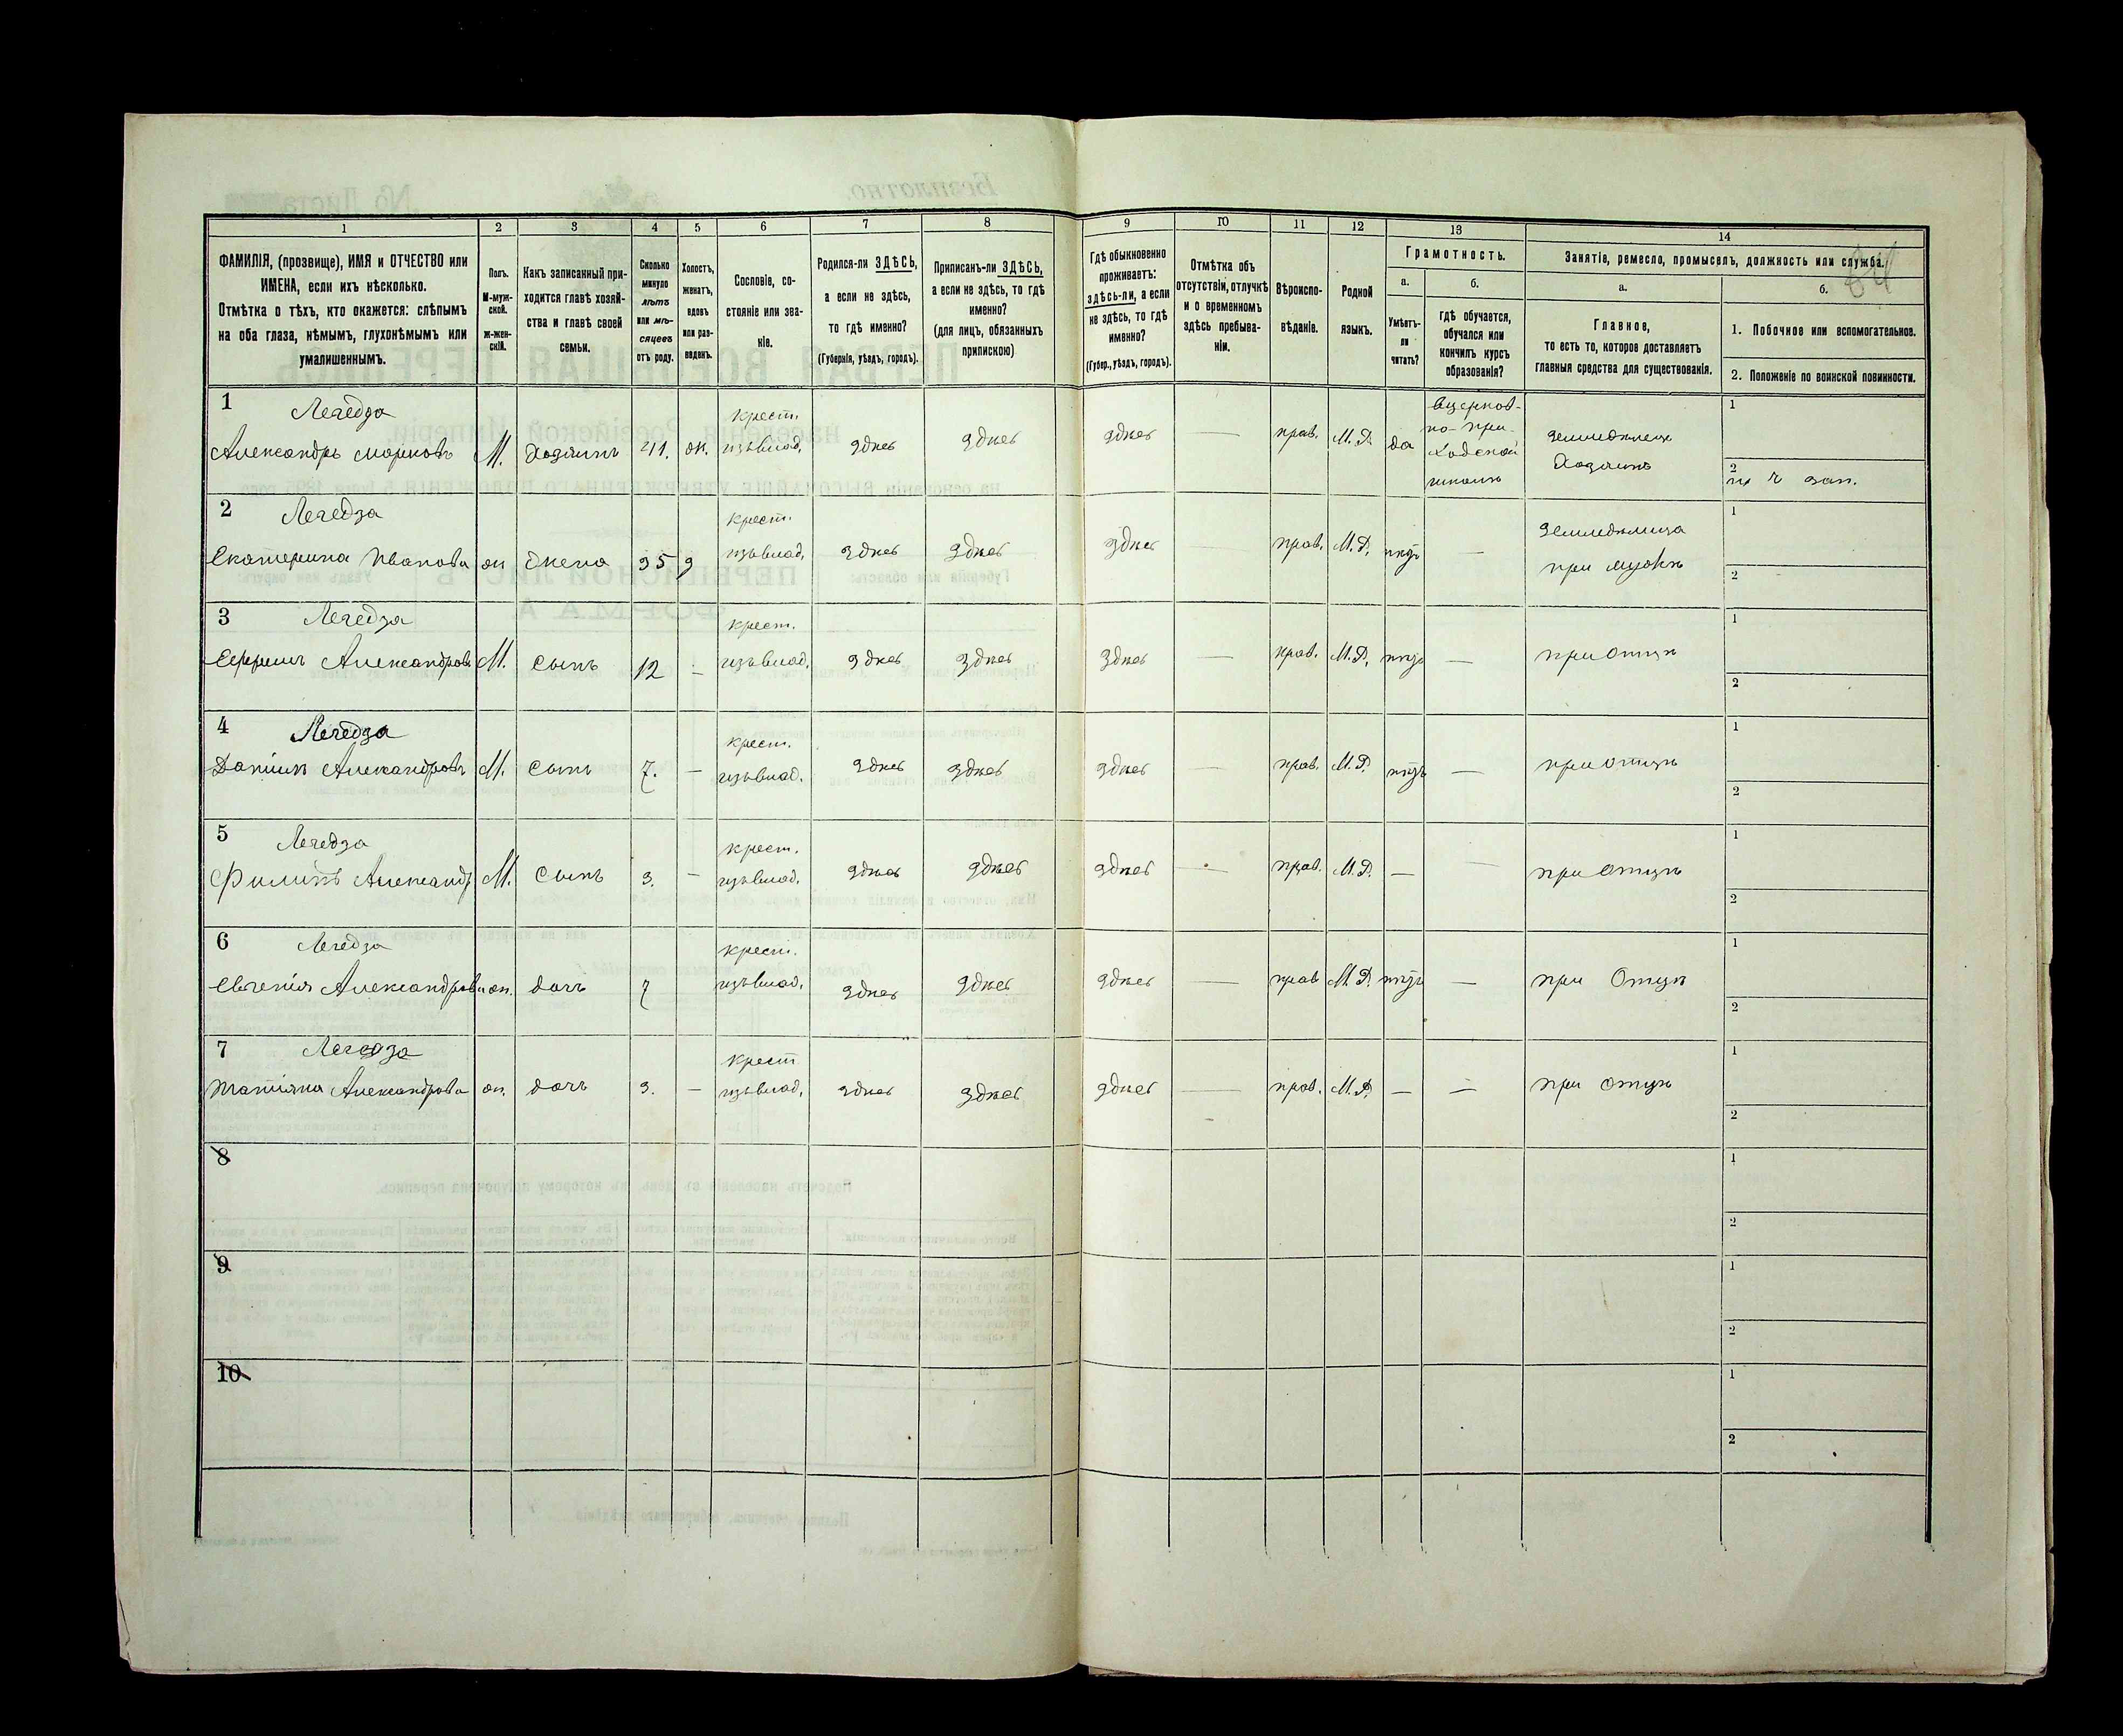 1
2
3
4
5
6
7
8
ФАМИЛІЯ, (прозвище), ИМЯ и ОТЧЕСТВО или
ИМЕНА, если ихъ нѣсколько.
Отмѣтка о тѣхъ, кто окажется: слѣпымъ
на оба глаза, нѣмымъ, глухонѣмымъ или
умалишеннымъ.
Полъ.
М-муж-
ской.
ж-жен-
скій.
Какъ записанный при-
ходится главѣ хозяй-
ства и главѣ своей
семьи.
Сколько
минуло
лѣтъ
или мѣ-
сяцевъ
отъ роду.
Холостъ,
женатъ,
вдовъ
или раз-
веденъ.
Сословіе, со-
стояніе или зва-
ніе.
Родился-ли ЗДѢСЬ,
а если не здѣсь,
то гдѣ именно?
(Губернія, уѣздъ, городъ).
Приписанъ-ли ЗДѢСЬ,
а если не здѣсь, то гдѣ
именно?
(для лицъ, обязанныхъ
припискою)
9
10
11
12
13
14
Гдѣ обыкновенно
проживаетъ:
здѣсь-ли, а если
не здѣсь, то гдѣ
именно?
(Губер., уѣздъ, городъ).
Отмѣтка объ
отсутствіи, отлучкѣ
и о временномъ
здѣсь пребыва-
ніи.
Вѣроиспо-
вѣданіе.
Родной
языкъ.
Грамотность.
а.
Умѣетъ-
ли
читать?
б.
гдѣ обучается,
обучался или
кончилъ курсъ
образованія?
Занятіе, ремесло, промыселъ, должность или служба.
а.
Главное,
то есть то, которое доставляетъ
главныя средства для существованія.
б.
1. Побочное или вспомогательное.
2. Положеніе по воинской повинности.
1 Лечедза
Александръ Марковъ М. Хозяинъ 41. ж. крест. изъ влад. здѣсь здѣсь здѣсь — прав. М.Р. да
в церков-
но-при-
ходской
школѣ
земледѣлецъ
Хозяинъ
1
2
2 Лечедза
Екатерина Иванова ж жена 35 з крест. изъ влад. здѣсь здѣсь здѣсь — прав. М.Р. нѣтъ —
земледѣлица
при мужѣ
1
2
3 Лечедза
Ефремъ Александровъ М. сынъ 12 - крест. изъ влад. здѣсь здѣсь здѣсь — прав. М.Р. нѣтъ — при отцѣ
1
2
4 Лечедза
Даніилъ Александровъ М. сынъ 7. — крест. изъ влад. здѣсь здѣсь здѣсь — прав. М.Р. нѣтъ — при отцѣ
1
2
5 Лечедза
Филипъ Александр М. Сынъ 3. — крест. изъ влад. здѣсь здѣсь здѣсь — прав. М.Р. — — при отцѣ
1
2
6 Лечедза
Евгенія Александрова ж. дочь 7 крест. изъ влад. здѣсь здѣсь здѣсь — прав М.Р. нѣтъ — при Отцѣ
1
2
7 Лечедза
Татіяна Александрова ж. дочь 3. — крест изъ влад. здѣсь здѣсь здѣсь — прав. М.Р. — — при отцѣ
1
2
8
1
2
9
1
2
10
1
2